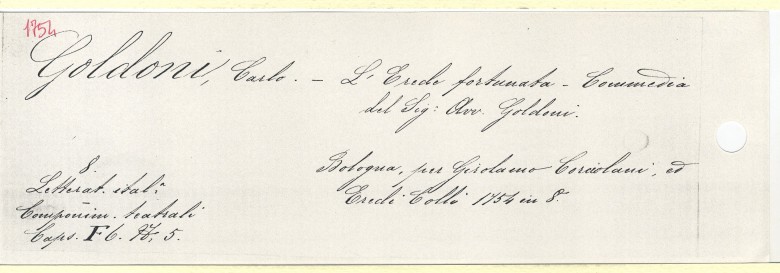 1754
Goldoni, Carlo. — L'Erede fortunata — Commedia
del Sig: Avv. Goldoni.
Bologna, per Girolamo Corciolani, ed
Eredi Colli 1754 in 8.
8.
Letterat. ital.ª
Componim. teatrali
Caps. F 6. N, 5.